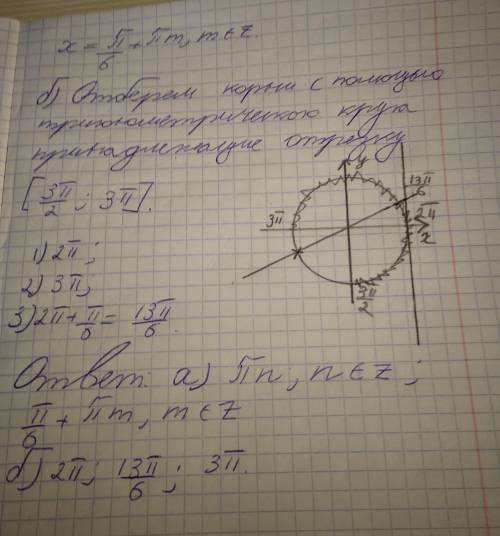 x = π/6 + πm, m ∈ z.
б) Отберем корни с помощью
тригонометрического круга
принадлежащие отрезку
[3π/2; 3π].
1) 2π;
2) 3π;
3) 2π + π/6 = 13π/6.
y
13π/6
3π
2π
x
3π/2
Ответ: а) πn, n ∈ z;
π/6 + πm, m ∈ z
б) 2π; 13π/6; 3π.